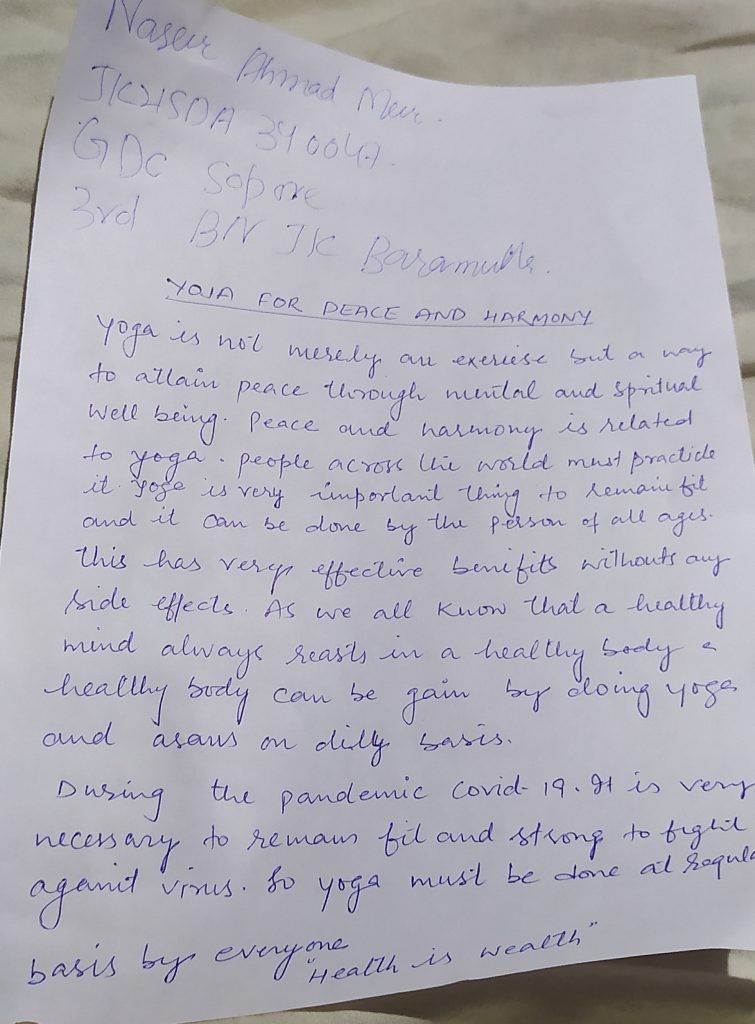 Naseer Ahmad Meer.
JK21SDA 390047.
GDC Sopore
3rd BN JK Baramulla.
YOJA FOR PEACE AND HARMONY
Yoga is not merely an exercise but a way
to attain peace through mental and spritual
well being. Peace and harmony is related
to yoga. people across the world must practicle
it. Yoga is very important thing to remain fit
and it can be done by the person of all ages.
This has very effective benifits withouts any
side effects. As we all know that a healthy
mind always reasts in a healthy body &
healthy body can be gain by doing yoga
and asans on dilly basis.
During the pandemic covid-19. It is very
necessary to remain fit and strong to fight
aganit virus. So yoga must be done at regula
basis by everyone
"Health is wealth"